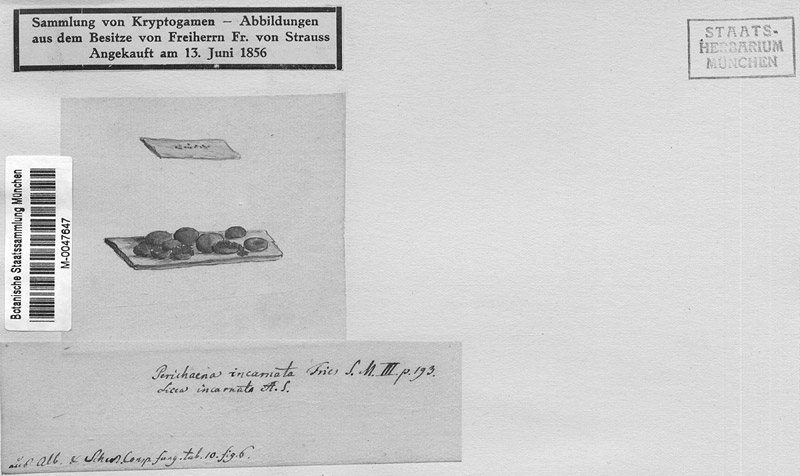 Sammlung von Kryptogamen – Abbildungen
aus dem Besitze von Freiherrn Fr. von Strauss
Angekauft am 13. Juni 1856
STAATS-
HERBARIUM
MÜNCHEN
Botanische Staatssammlung München
M-0047647
Perichaena incarnata Fries S. M. III. p. 193.
Licea incarnata A. S.
aus Alb. & Schw. Consp. fung. tab. 10. fig. 6.